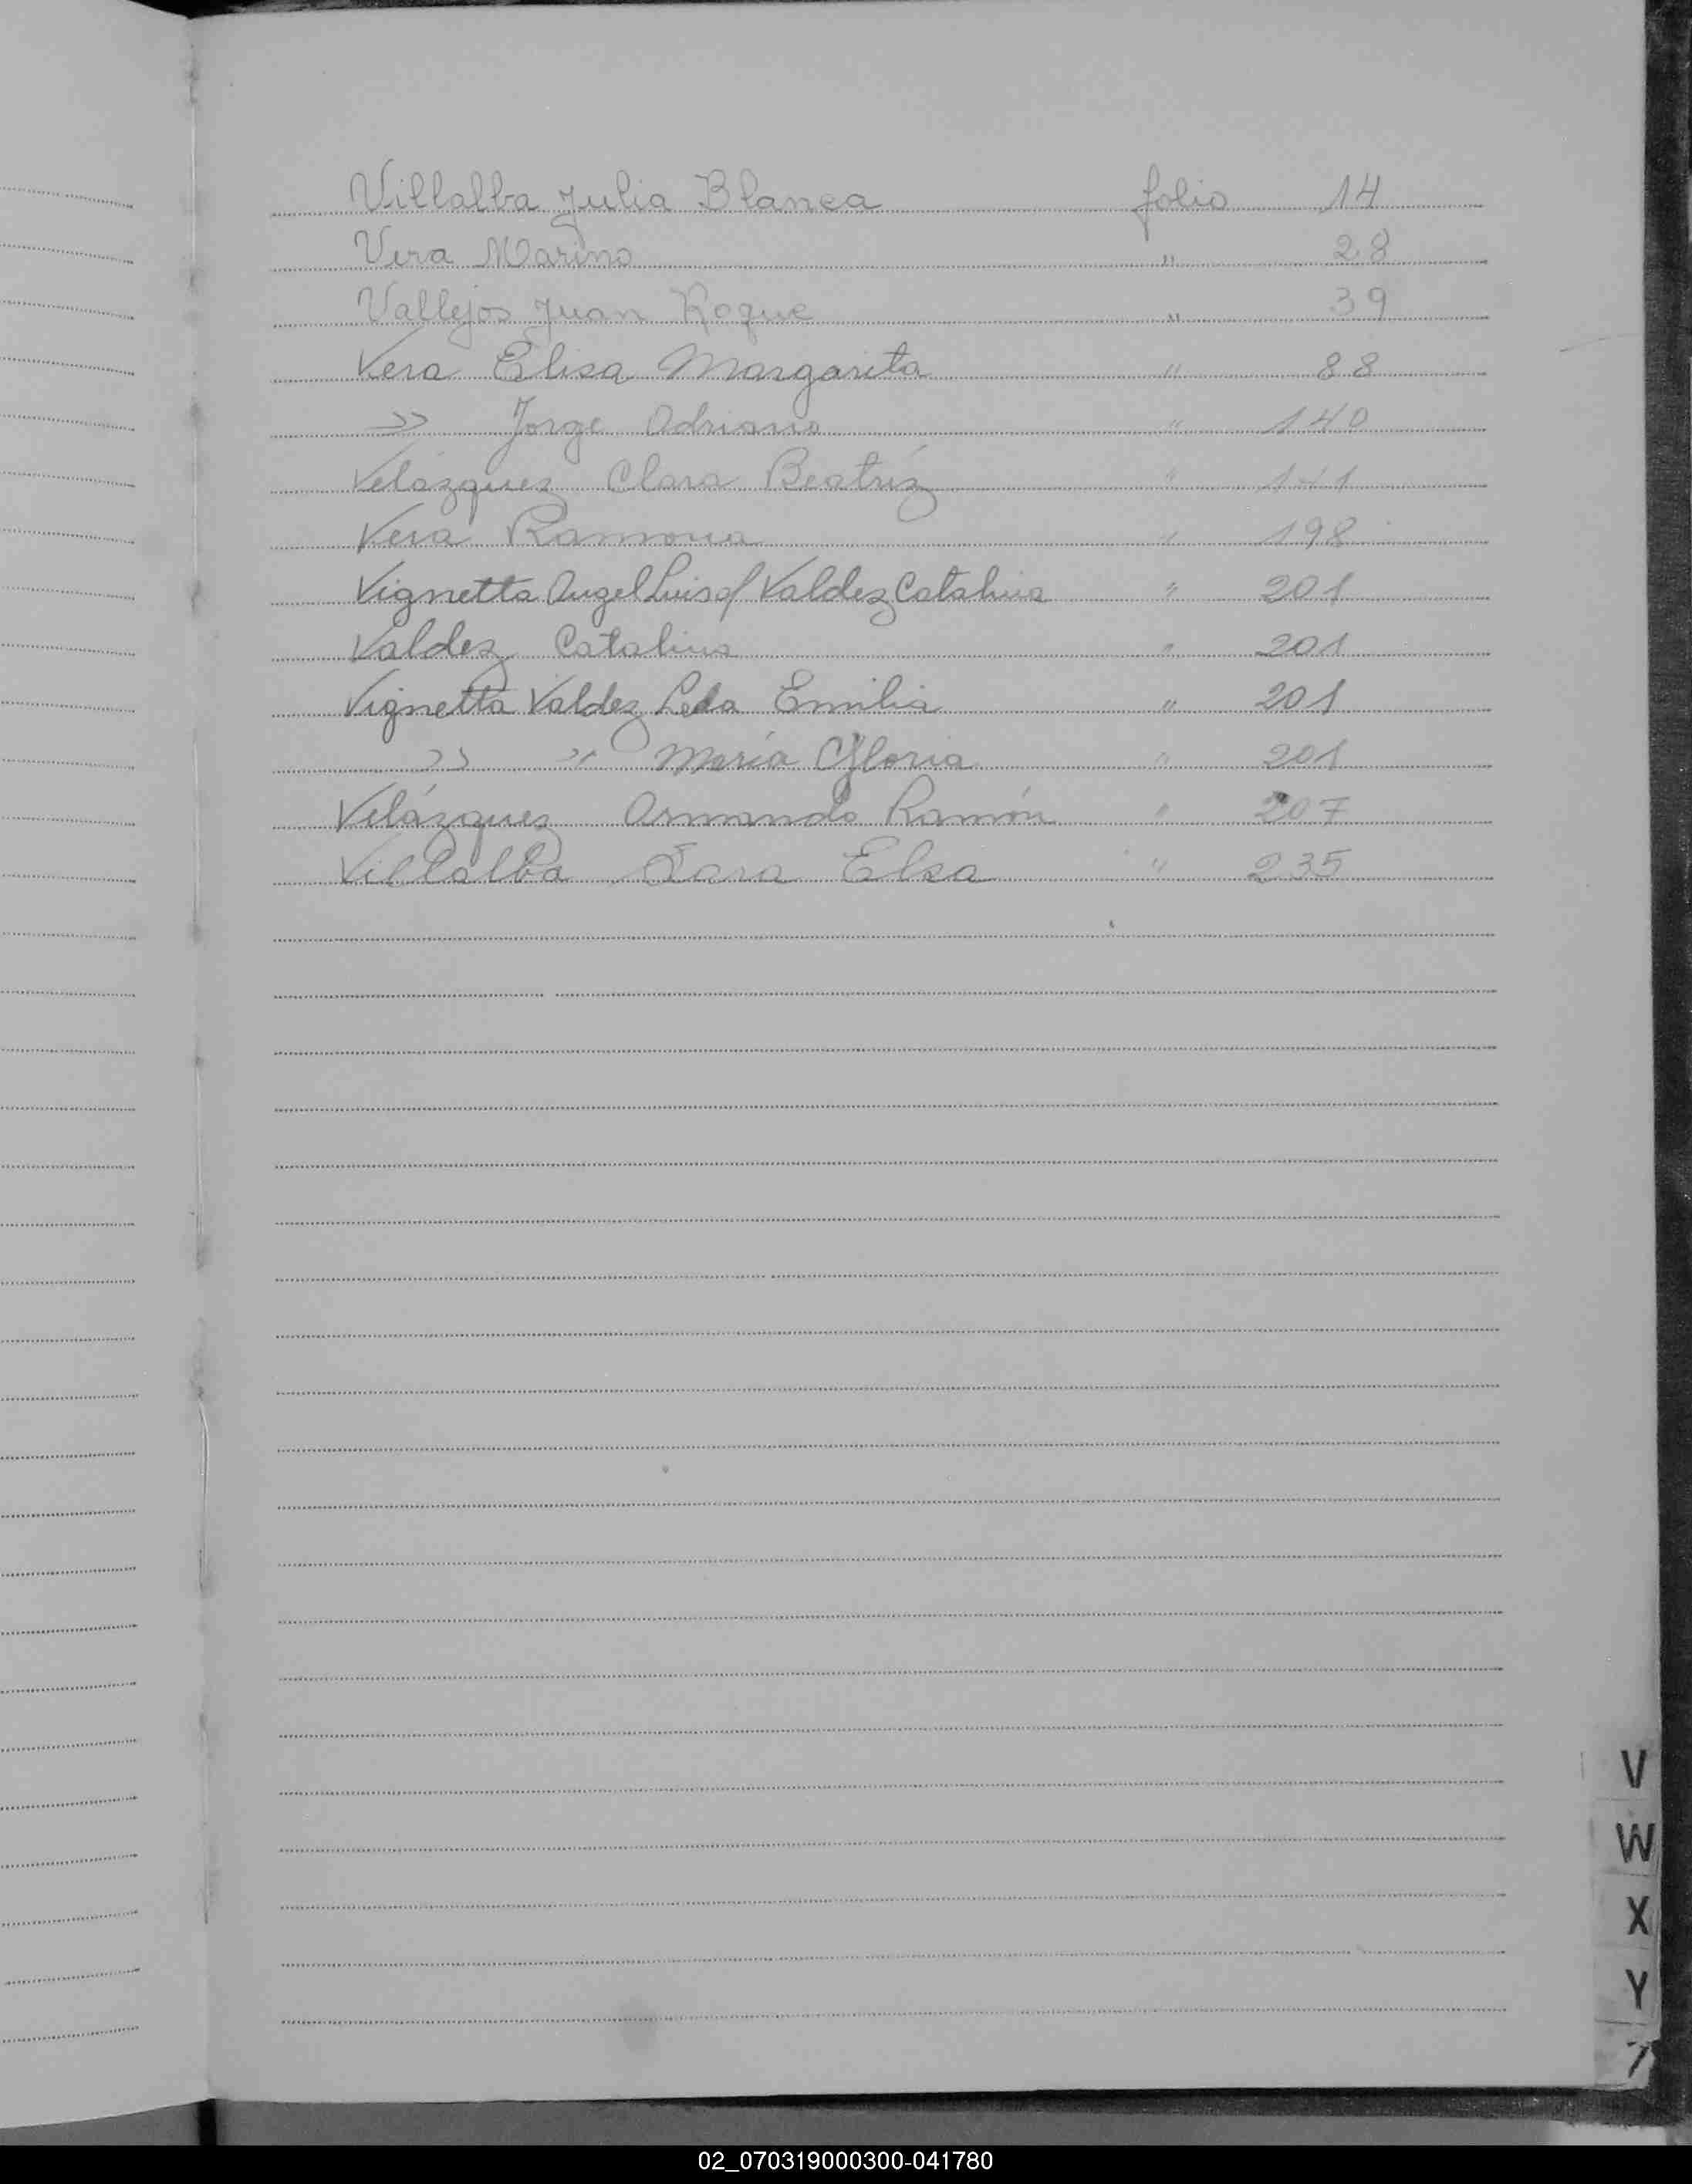 Villalba Julia Blanca folio 14
Vera Marino " 28
Vallejos Juan Roque " 39
Vera Elisa Margarita " 88
" Jorge Adriano " 140
Velázquez Clara Beatríz "
Vera Ramona " 198
Vignetta Angel Luis c/ Valdez Catalina " 201
Valdez Catalina " 201
Vignetta Valdez Leda Emilia " 201
" " María Gloria " 201
Velázquez Armando Ramón " 207
Villalba Sara Elsa " 235
V
W
X
Y
Z
02_070319000300-041780